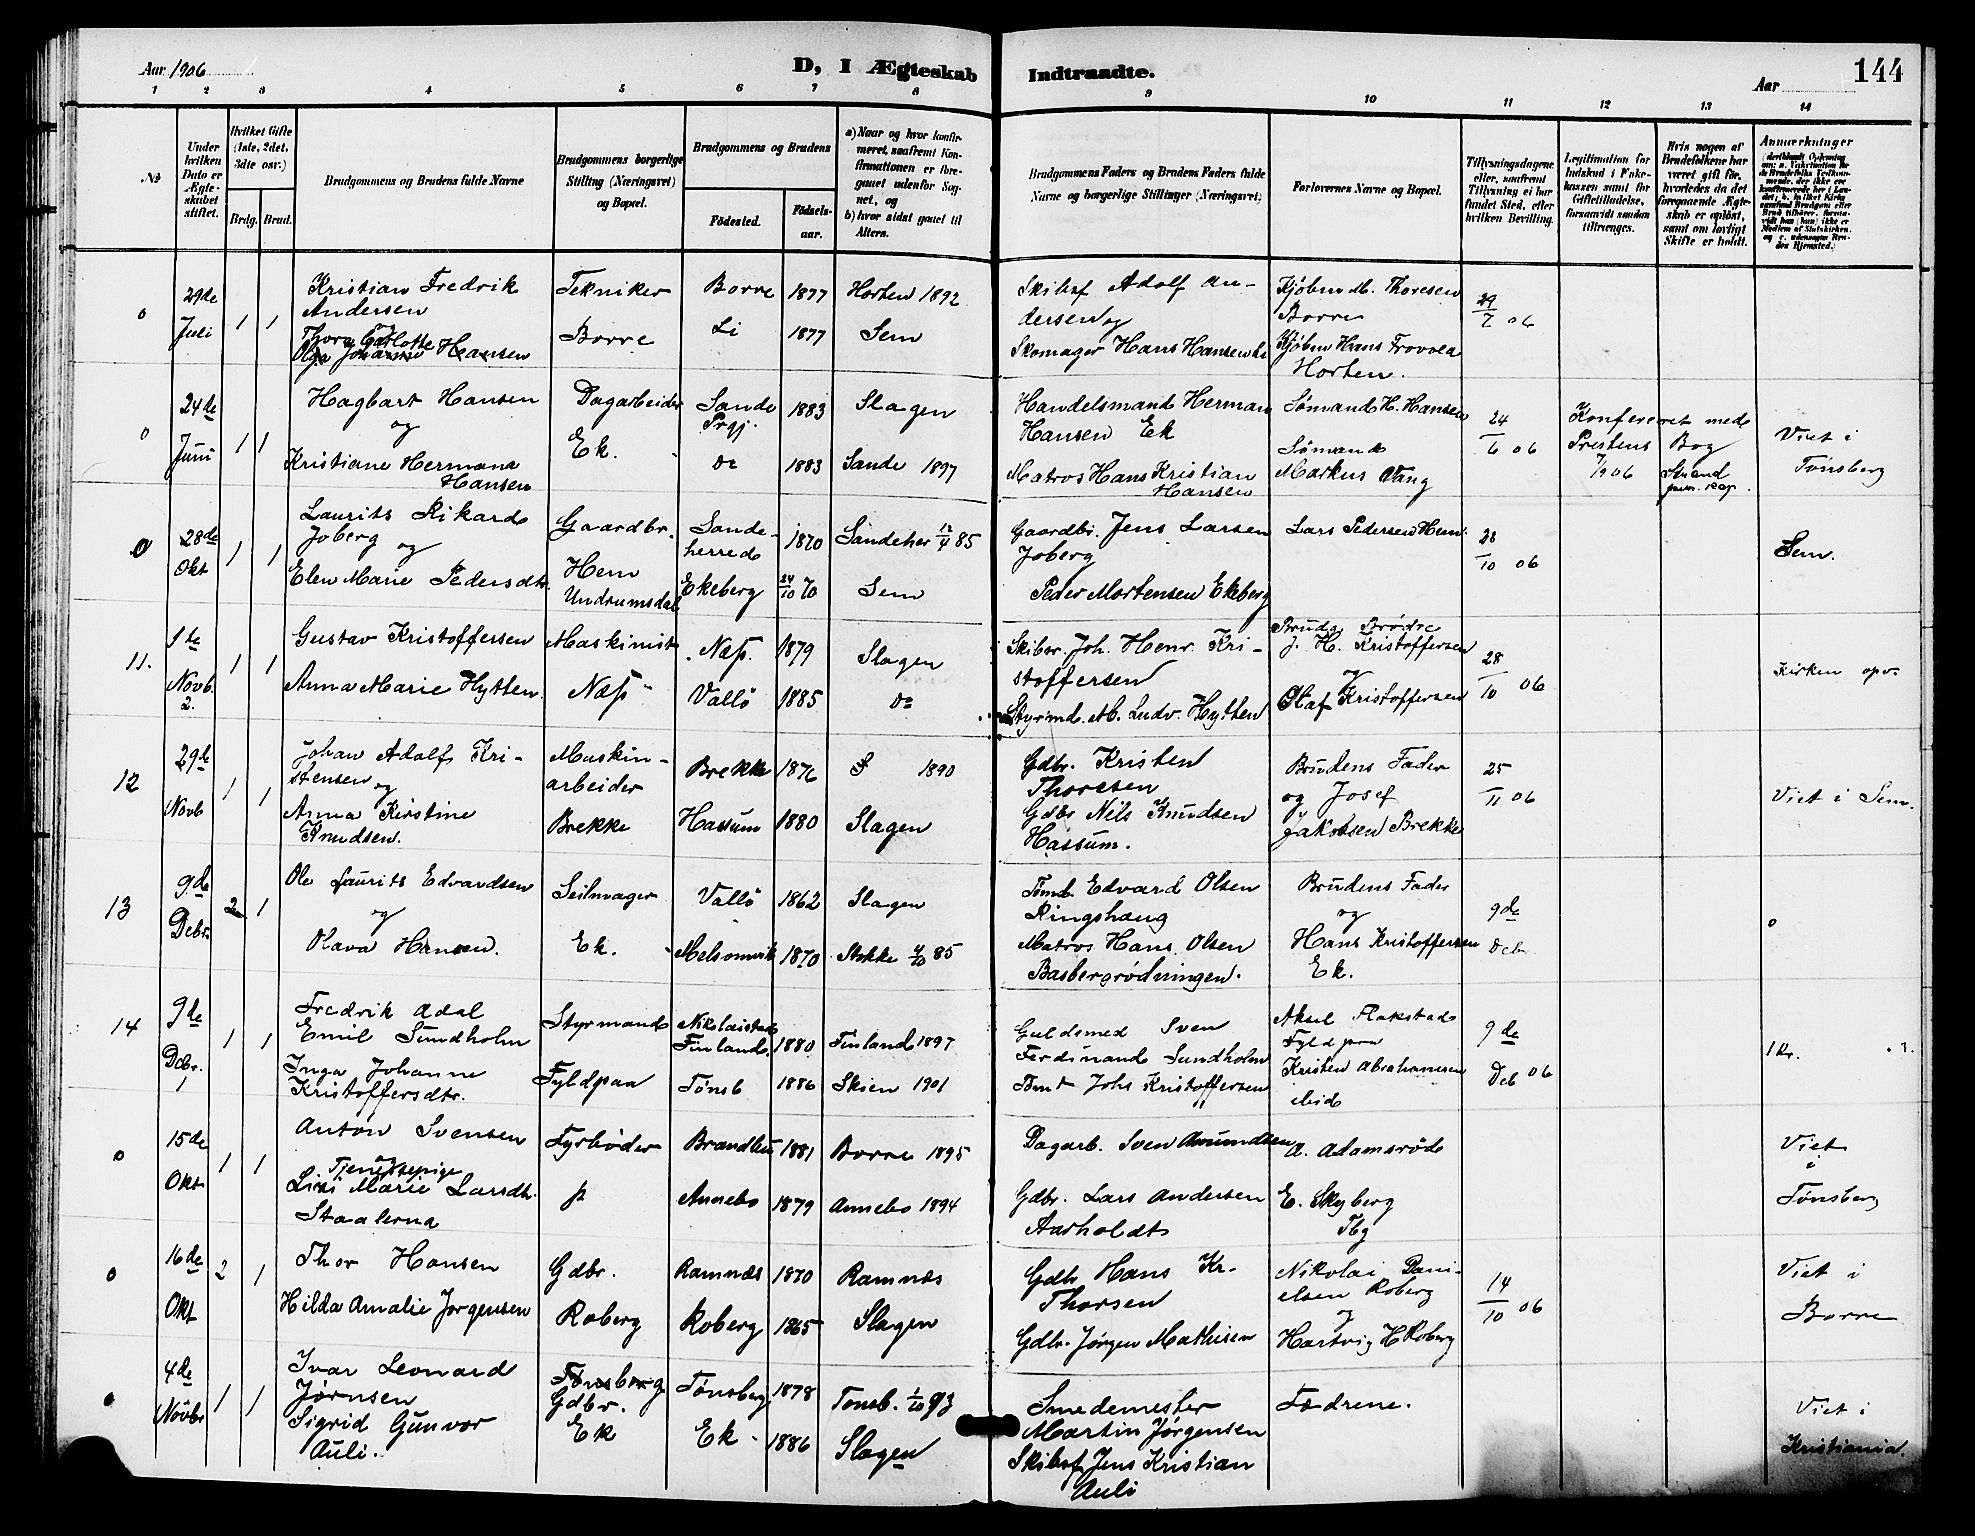 Aar 1906
D, I Ægteskab
Indtraadte.
Aar
144
1 2 3 4 5 6 7 8 9 10 11 12 13 14
No
Under hvilken Dato er Ægteskabet stiftet.
Hvilket Gifte (1ste, 2det, 3die osv.)
Brdg. Brud.
Brudgommens og Brudens fulde Navne
Brudgommens borgerlige Stilling (Næringsvei) og Bopæl.
Brudgommens og Brudens
Fødested.
Fødselsaar.
a) Naar og hvor konfirmeret, saafremt Konfirmationen er foregaaet udenfor Sognet, og
b) hvor sidst gaaet til Alters.
Brudgommens Faders og Brudens Faders fulde Navne og borgerlige Stillinger (Næringsvei)
Forlovernes Navne og Bopæl.
Tillysningsdagene eller, saafremt Tillysning ei har fundet Sted, efter hvilken Bevilling.
Legitimation for Indskud i Enkekassen samt for Giftetilladelse, forsaavidt saadan tiltrænges.
Hvis nogen af Brudefolkene har været gift før, hvorledes da det foregaaende Ægteskab er opløst, samt om lovligt Skifte er holdt.
Anmærkninger
o 29de Juli 1 1
Kristian Fredrik Andersen og
Thora Carlotte
Olga Johanne Hansen
Tekniker Borre
Borre 1877 Horten 1892
Li 1877 Sem
Skibsf Adolf Andersen og
Skomager Hans Hansen Li
Kjøbm M. Thoresen Borre
Kjøbm Hans Trovola Horten.
29/7 06
o 24de Juni 1 1
Hagbart Hansen
og
Kristiane Hermana Hansen
Dagarbeider Ek.
Sande Prgj. 1883 Slagen
do 1883 Sande 1897
Handelsmand Herman Hansen Ek
Matros Hans Kristian Hansen
Sømand H. Hansen
Sømand Markus Vang
24/6 06
Konfereret med Prestens Bog
7/9 06
Viet i Tønsberg
o 28de Okt 1 1
Laurits Rikard Joberg og
Elen Marie Pedersdtr.
Gaardbr. Hem Undrumsdal
Sandeherred 1870 Sandeher 12/4 85
Ekeberg 24/10 70 Sem
Gaardbr. Jens Larsen Joberg
Peder Mortensen Ekeberg
Lars Pedersen Hem.
28/10 06
Sem.
11. 1te Novb. 2. 1 1
Gustav Kristoffersen
Anna Marie Hytten.
Maskinist Næs
Næs 1879 Slagen
Vallö 1885 do
Skibsr. Joh. Henr. Kristoffersen
Styrmd. M. Ludv. Hytten
Brudg Brødre
J. H. Kristoffersen
og
Olaf Kristoffersen
28/10 06
Kirken opv.
12 29de Novb 1 1
Johan Adolf Kristensen og
Anna Kirstine Knudsen.
Maskinarbeider Brekke
Brekke 1876 S 1890
Hassum 1880 Slagen
Gdbr. Kristen Thoresen
Gdbr Nils Knudsen Hassum.
Brudens Fader
og Josef
Jakobsen Brekke
25/11 06
Viet i Sem.
13 9de Debr. 2 1
Ole Laurits Edvardsen
og
Olava Hansen.
Seilmager Ek.
Vallö 1862 Slagen
Melsomvik 1870 Stokke 4/10 85
Tømd. Edvard Olsen Ringshaug
Matros Hans Olsen Basbergrødningen.
Brudens Fader
og
Hans Kristoffersen Ek.
9de Deb
o
14 9de Debr. 1 1 1
Fredrik Adal
Emil Sundholm
Inga Johanne
Kristoffersdtr.
Styrmand Fyldpaa
Nikolaistad Finland. 1880 Finland 1897
Tønsb 1886 Skien 1901
Guldsmed Sven
Ferdinand Sundholm
Tømt Johs Kristoffersen
Aksel Flakstad
Fyldpaa
Kristen Abrahamsen ibid
9de Deb 06
1 Kr.
o 15de Okt 1 1
Anton Svensen
og
Tjenestepige
Lisi Marie Larsdtr.
Staalerna
Fyrbøder
Brandbu 1881 Borre 1895
Annebo 1879 Annebo 1894
Dagarb. Sven Amundsen
Gdbr. Lars Andersen Aarholdt
A. Adamsrød
E. Skyberg Tbg
Viet i Tønsberg
o 16de Okt 2 1
Thor Hansen
Hilda Amalie Jørgensen
Gdbr. Roberg
Ramnæs 1870 Ramnæs
Roberg 1865 Slagen
Gdbr Hans Kr. Thorsen
Gdbr. Jørgen Mathisen
Nikolai Danielsen Roberg
og
Hartvig H Roberg
14/10 06
Viet i Borre
o 4de Novbr 1 1
Ivar Leonard
Jørnsen
Sigrid Gunvor
Auli.
Tønsberg Gdbr. Ek
Tønsberg 1878 Tønsb. 1/10 93
Ek 1886 Slagen
Smedemester
Martin Jørgensen
Skibsf Jens Kristian
Auli
Fædrene.
Viet i Kristiania.